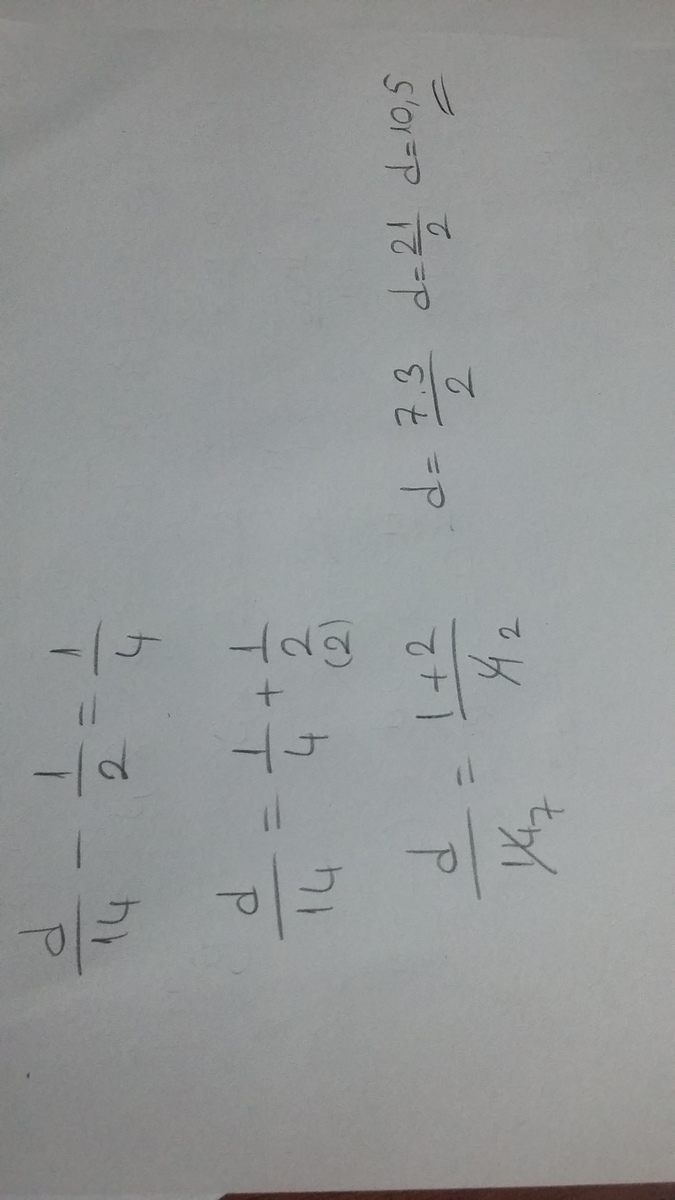 d/14 - 1/2 = 1/4
d/14 = 1/4 + 1/2 (2)
d/14 7 = 1+2/4 2 d = 7.3/2 d = 21/2 d = 10,5